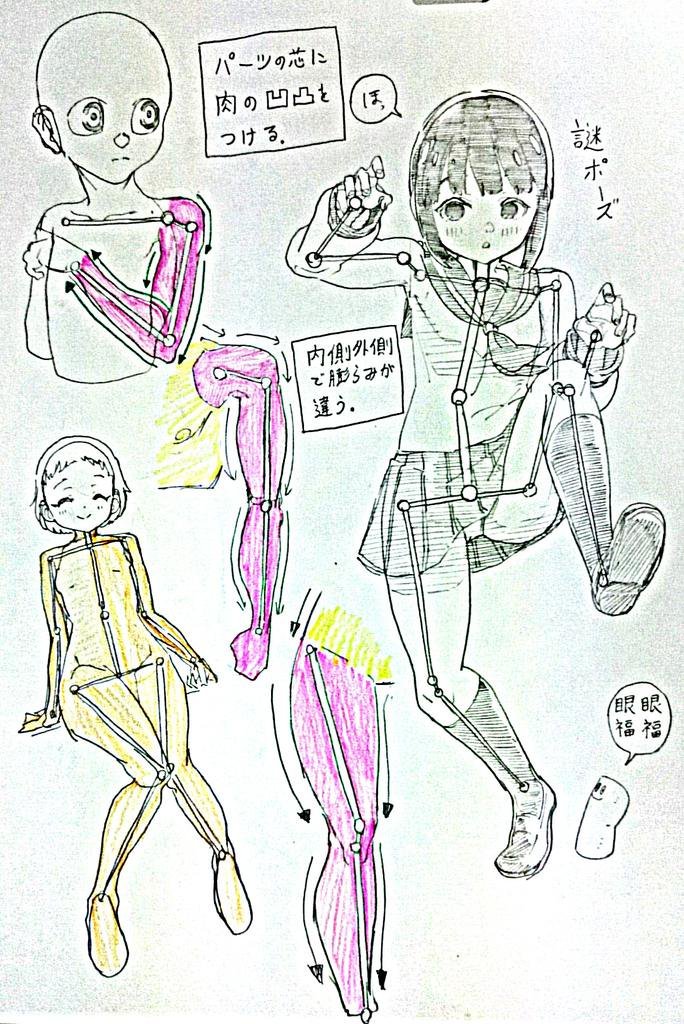 パーツの芯に
肉の凹凸を
つける。
ほっ
謎ポーズ
内側外側
で膨らみが
違う。
眼福
眼福